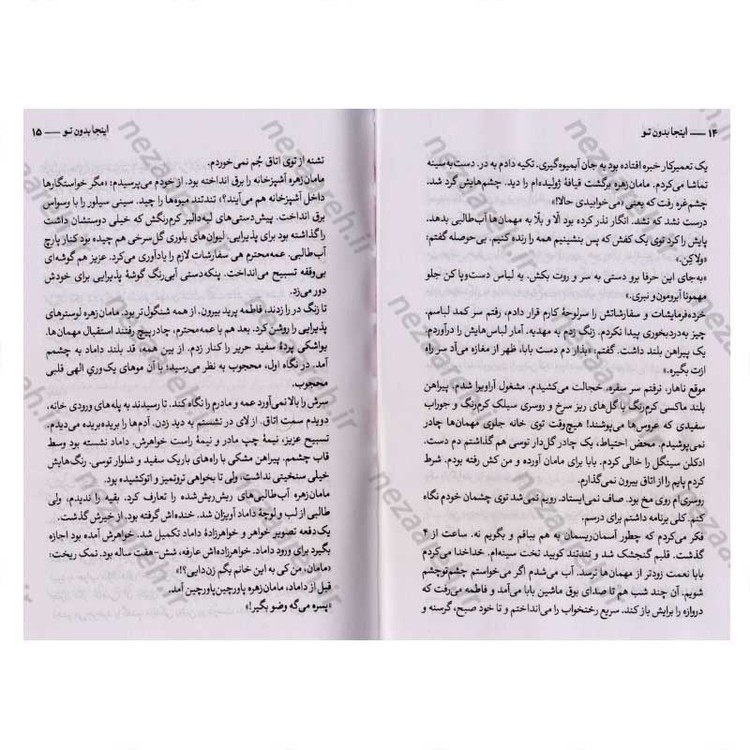 ۱۴ — اینجا بدون تو
یک تعمیرکار خبره افتاده بود به جان آبمیوه‌گیری. تکیه دادم به در. دست‌به‌سینه
تماشا می‌کردم. مامان‌زهره برگشت قیافهٔ ژولیده‌ام را دید. چشم‌هایش گرد شد.
چشم‌غره رفت که یعنی «می‌خوابیدی حالا!»
درست نشد که نشد. انگار نذر کرده بود الّا و بلّا به مهمان‌ها آب‌طالبی بدهد.
پایش را کرد توی یک کفش که پس بنشینیم همه را رنده کنیم. بی‌حوصله گفتم:
«ولا‌کن.»
«به‌جای این حرفا برو دستی به سر و روت بکش. یه لباس دست‌وپاکن جلو
مهمونا آبرومون و نبری.»
خرده‌فرمایشات و سفارشاتش را سرلوحهٔ کارم قرار دادم، رفتم سر کمد لباسم.
چیز به‌دردبخوری پیدا نکردم. زنگ زدم به مهدیه. آمار لباس‌هایش را درآوردم.
یک پیراهن بلند داشت. گفتم: «بذار دم دست بابا، ظهر از مغازه می‌آد سر راه
ازت بگیره.»
موقع ناهار، نرفتم سر سفره. خجالت می‌کشیدم. مشغول آراویرا شدم. پیراهن
بلند ماکسی کرم‌رنگ با گل‌های ریز سرخ و روسری سیلک کرم‌رنگ و جوراب
سفیدی که عروس‌ها می‌پوشند! هیچ‌وقت توی خانه جلوی مهمان‌ها چادر
نمی‌پوشیدم. محض احتیاط، یک چادر گل‌دار توسی هم گذاشتم دم دست.
ادکلن سینگل را خالی کردم. بابا برای مامان آورده و من کش رفته بودم. شرط
کردم پایم را از اتاق بیرون نمی‌گذارم.
روسری‌ام روی مخ بود. صاف نمی‌ایستاد. رویم نمی‌شد توی چشمان خودم نگاه
کنم. کلی برنامه داشتم برای درسم.
فکر می‌کردم که چطور آسمان‌ریسمان به هم ببافم و بگویم نه. ساعت از ۴
گذشت. قلبم گنجشک شد و تندتند کوبید تخت سینه‌ام. خداخدا می‌کردم
بابا نعمت زودتر از مهمان‌ها نرسد. آب می‌شدم اگر می‌خواستم چشم‌توچشم
شویم. آن چند شب هم تا صدای بوق ماشین بابا می‌آمد و فاطمه می‌رفت که
دروازه را برایش باز کند، سریع رختخواب را می‌انداختم و تا خود صبح، گرسنه و
اینجا بدون تو — ۱۵
تشنه از توی اتاق جُم نمی‌خوردم.
مامان‌زهره آشپزخانه را برق انداخته بود. از خودم می‌پرسیدم: «مگر خواستگارها
داخل آشپزخانه هم می‌آیند؟» تندتند میوه‌ها را چید. سینی سیلور را با وسواس
برق انداخت. پیش‌دستی‌های لبه‌دالبر کرم‌رنگش که خیلی دوستشان داشت
را گذاشته بود برای پذیرایی. لیوان‌های بلوری گل‌سرخی هم چیده بود کنار پارچ
آب‌طالبی. عمه‌محترم هی سفارشات لازم را یادآوری می‌کرد. عزیز هم گوشه‌ای
بی‌وقفه تسبیح می‌انداخت. پنکه‌دستی آبی‌رنگ گوشهٔ پذیرایی برای خودش
دور می‌زد.
تا زنگ در را زدند، فاطمه پرید بیرون. از همه شنگول‌تر بود. مامان‌زهره لوسترهای
پذیرایی را روشن کرد. بعد هم با عمه‌محترم، چادرپیچ رفتند استقبال مهمان‌ها.
یواشکی پردهٔ سفید حریر را کنار زدم. از بین همه، قد بلند داماد به چشمم
آمد. در نگاه اول، محجوب به نظر می‌رسید؛ با آن موهای یک‌وری الهی قلبی
محجوب.
سرش را بالا نمی‌آورد عمه و مادرم را نگاه کند. تا رسیدند به پله‌های ورودی خانه،
دویدم سمت اتاق. از لای در نشستم به دید زدن. آدم‌ها را بریده‌بریده می‌دیدم.
تسبیح عزیز، نیمهٔ چپ مادر و نیمهٔ راست خواهرش. داماد نشسته بود وسط
قاب چشمم. پیراهن مشکی با راه‌های باریک سفید و شلوار توسی. رنگ‌هایش
خیلی سنخیتی نداشت، ولی تا بخواهی تروتمیز و اتوکشیده بود.
مامان‌زهره آب‌طالبی‌های ریش‌ریش‌شده را تعارف کرد. بقیه را ندیدم، ولی
طالبی از لب و لوچهٔ داماد آویزان شد. خنده‌اش گرفته بود. از خیرش گذشت.
یک‌دفعه تصویر خواهر و خواهرزادهٔ داماد تکمیل شد. خواهرش آمده بود اجازه
بگیرد برای ورود داماد. خواهرزاده‌اش عارفه، شش-هفت ساله بود. نمک ریخت:
«مامان، من کی به این خانم بگم زن‌دایی؟!»
قبل از داماد، مامان‌زهره پاورچین‌پاورچین آمد.
«پسره می‌گه وضو بگیر!»
nezaareh.ir